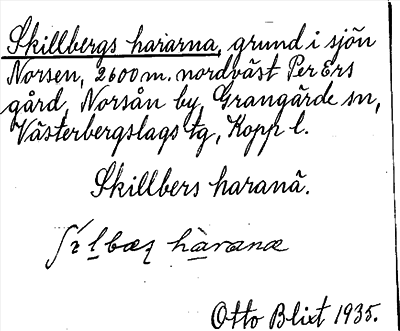 Skillbergs hararna, grund i sjön
Norsen, 2600 m. nordväst Per Ers
gård, Norsån by, Grangärde sn,
Västerbergslags tg, Kopp l.
Skillbers haranä.
hàranæ
Otto Blixt 1935.